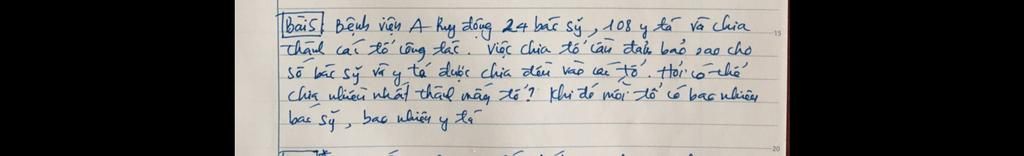 Bài 5 Bệnh viện A huy động 24 bác sỹ, 108 y tá và chia
thành các tổ công tác. Việc chia tổ cần đảm bảo sao cho
số bác sỹ và y tá được chia đều vào các tổ. Hỏi có thể
chia nhiều nhất thành mấy tổ? Khi đó mỗi tổ có bao nhiêu
bác sỹ, bao nhiêu y tá